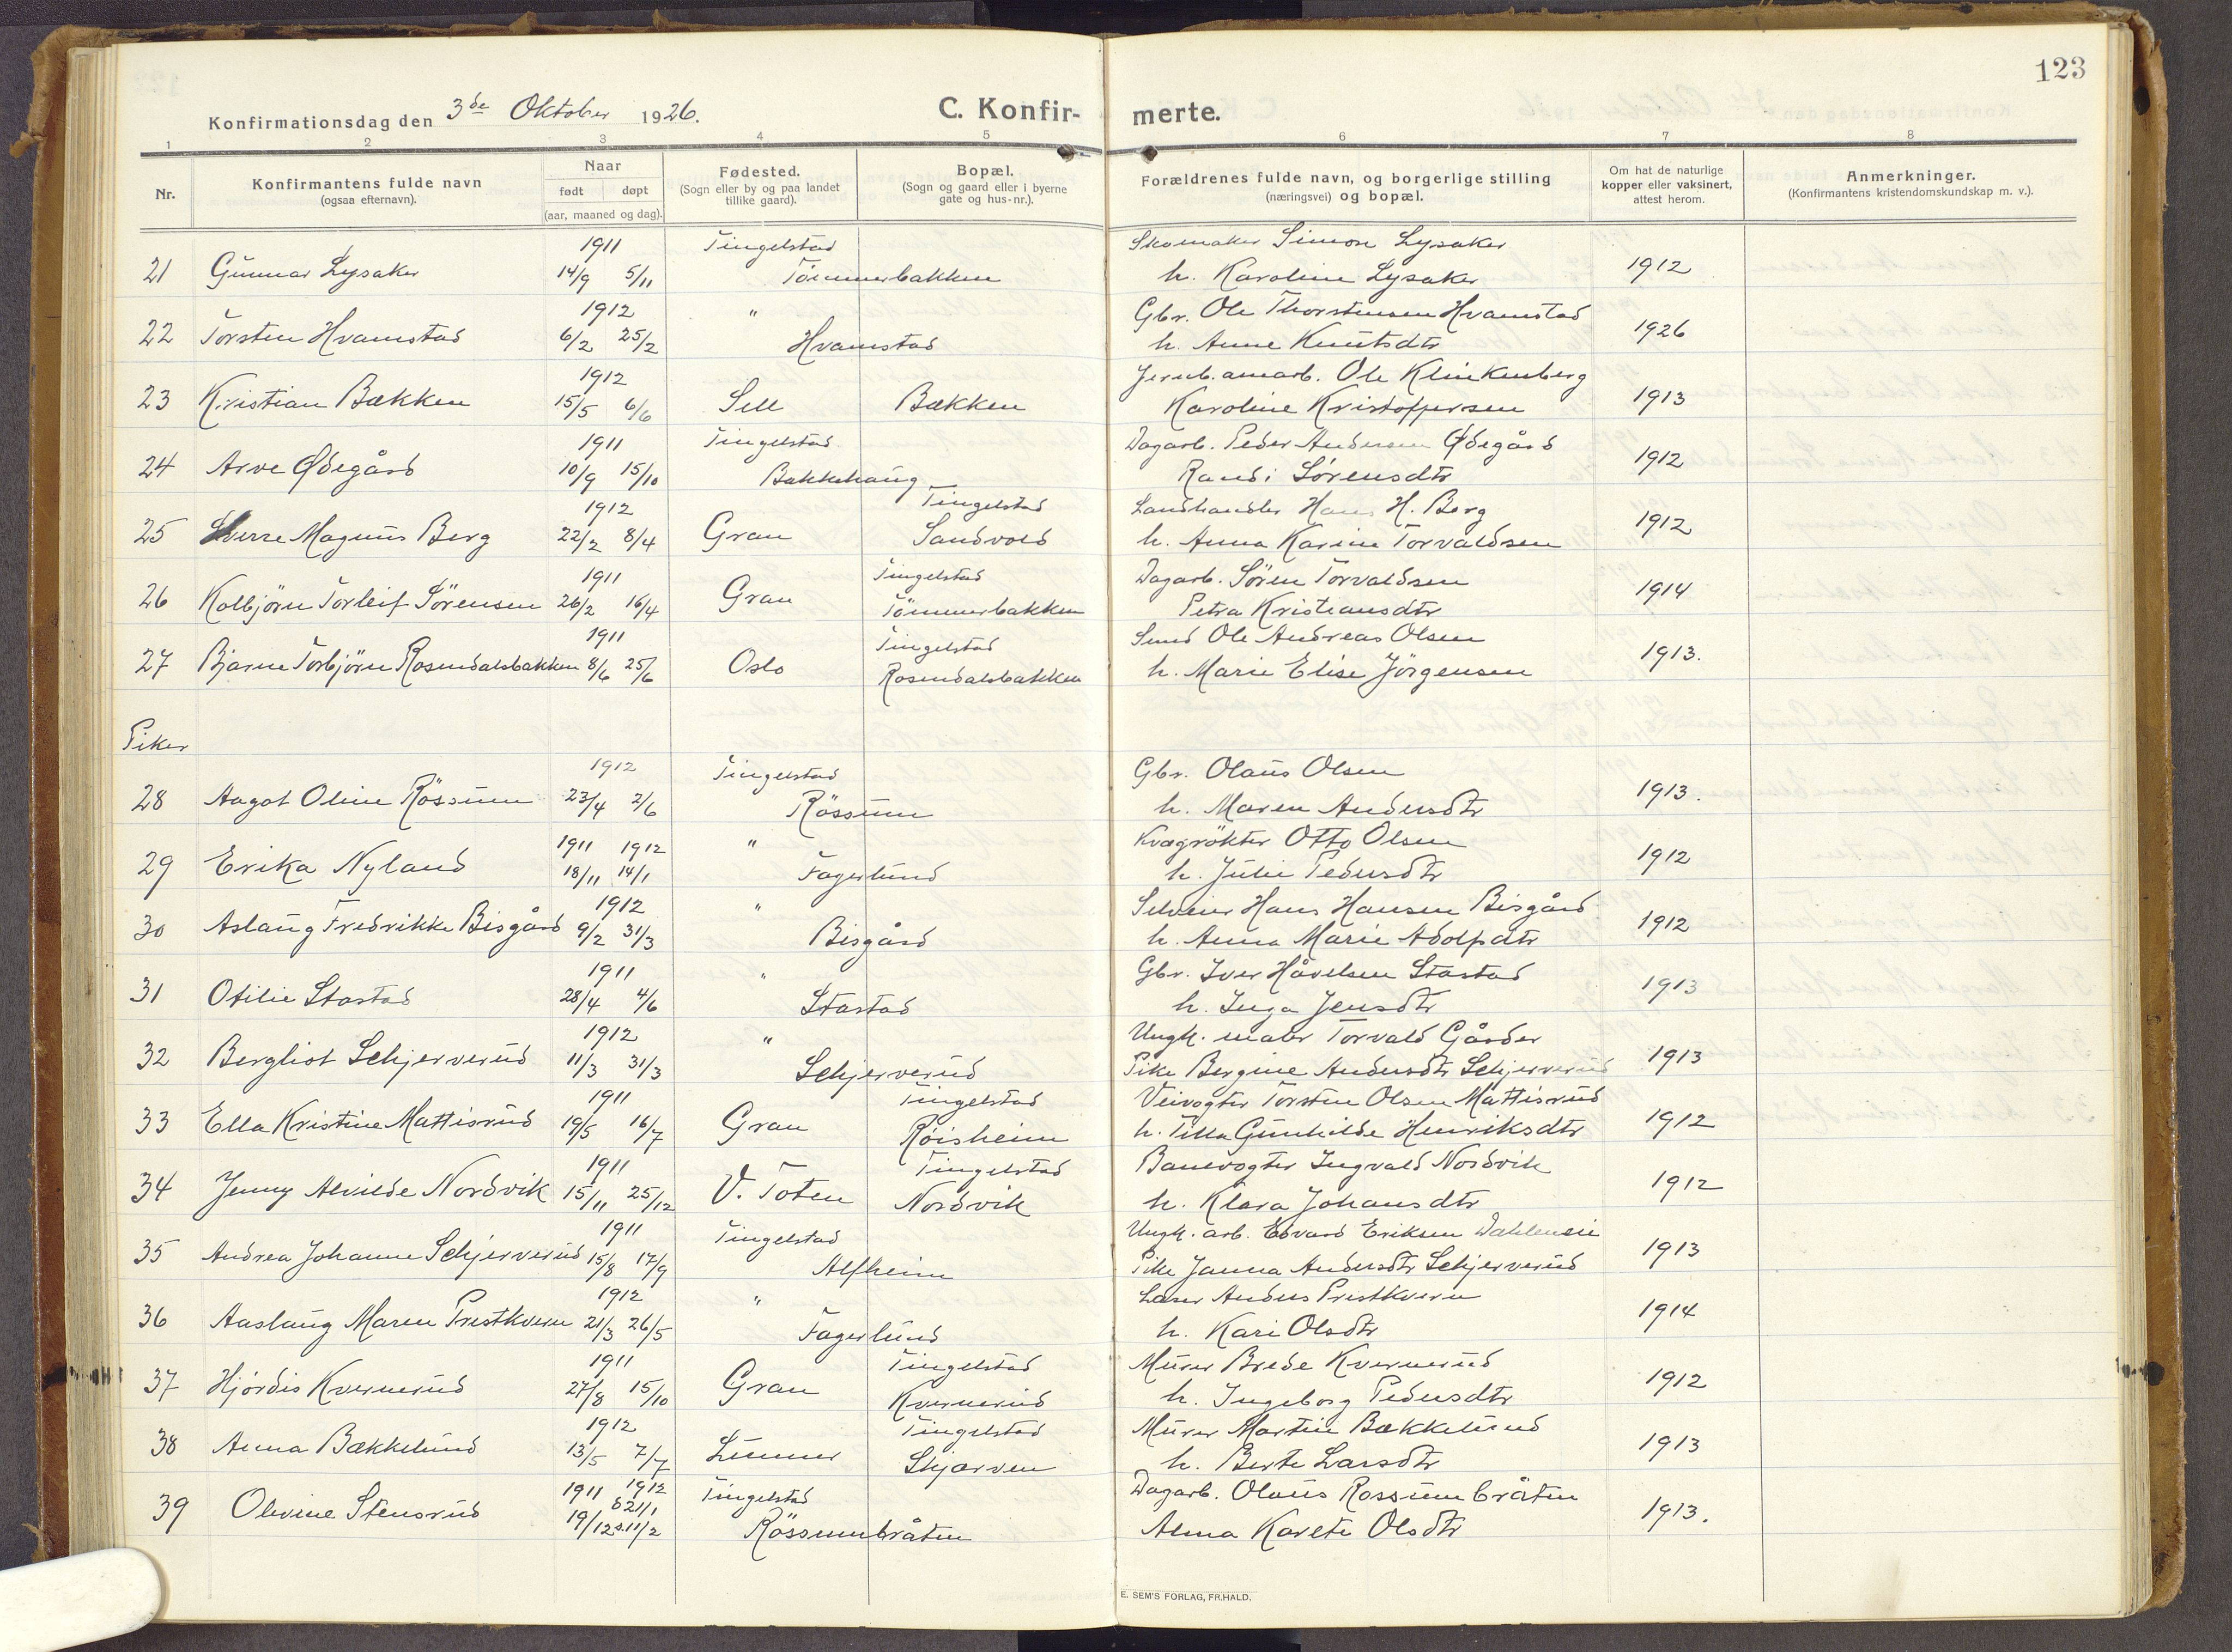 123
Konfirmationsdag den 3de Oktober 1926.
C. Konfir-
merte.
1 2 3 4 5 6 7 8
Nr.
Konfirmantens fulde navn
(ogsaa efternavn).
Naar
født døpt
(aar, maaned og dag).
Fødested.
(Sogn eller by og paa landet
tillike gaard).
Bopæl.
(Sogn og gaard eller i byerne
gate og hus-nr.).
Forældrenes fulde navn, og borgerlige stilling
(næringsvei) og bopæl.
Om hat de naturlige
kopper eller vaksinert,
attest herom.
Anmerkninger.
(Konfirmantens kristendomskundskap m. v.).
1911 Tingelstad Skomaker Simon Lysaker
21 Gunnar Lysaker 14/9 5/11 Tömmerbakken h. Karoline Lysaker 1912
1912 " Gbr. Ole Thorstensen Hvamstad
22 Torsten Hvamstad 6/2 25/2 Hvamstad h. Anne Knutsdtr 1926
1912 Jernb. anarb. Ole Klinkenberg
23 Kristian Bækken 15/5 6/6 Sell Bækken Karoline Kristoffersen 1913
1911 Tingelstad Dagarb. Peder Andersen Ødegård
24 Arve Ødegård 10/9 15/10 Bakkehaug Randi Sörensdtr 1912
1912 Tingelstad Landhandler Hans H. Berg
25 Sverre Magnus Berg 22/2 8/4 Gran Sandvold h. Anna Karine Torvaldsen 1912
1911 Tingelstad Dagarb. Sören Torvaldsen
26 Kolbjörn Torleif Sörensen 26/2 16/4 Gran Tömmerbakken Petra Kristiansdtr 1914
1911 Tingelstad Smed Ole Andreas Olsen
27 Bjarne Torbjörn Rosendalsbakken 8/6 25/6 Oslo Rosendalsbakken h. Marie Elise Jörgensen 1913.
Piker
1912 Tingelstad Gbr. Olaus Olsen
28 Aagot Oline Rössum 23/4 2/6 Rössum h. Maren Andersdtr 1913.
1911 1912 " Kvægrökter Otto Olsen
29 Erika Nyland 18/11 14/1 Fagerlund h. Julie Pedersdtr 1912
1912 " Selveier Hans Hansen Bisgård
30 Aslaug Fredrikke Bisgård 9/2 31/3 Bisgård h. Anna Marie Adolfsdtr 1912
1911 " Gbr. Iver Håvelsen Stastad
31 Otilie Stastad 28/4 4/6 Stastad h. Inga Jensdtr 1913
1912 " Ungk. maler Torvald Gårder
32 Bergliot Schjerverud 11/3 31/3 Schjerverud Pike Bergine Andersdtr Schjerverud 1913
1911 Tingelstad Veivogter Torsten Olsen Mattisrud
33 Ella Kristine Mattisrud 19/5 16/7 Gran Röisheim h. Tilla Gunhilde Henriksdtr 1912
1911 Tingelstad Banevogter Ingvald Nordvik
34 Jenny Alvilde Nordvik 15/11 25/12 V. Toten Nordvik h. Klara Johansdtr 1912
1911 Tingelstad Ungk. arb. Edvard Eriksen Dahleneie
35 Andrea Johanne Schjerverud 15/8 17/9 Alfheim Pike Janna Andersdtr Schjerverud 1913
1912 " Anders Prestkvern
36 Aaslaug Maren Prestkvern 21/3 26/5 Fagerlund h. Kari Olsdtr 1914
1911 Tingelstad Murer Brede Kvernerud
37 Hjördis Kvernerud 27/8 15/10 Gran Kvernerud h. Ingeborg Pedersdtr 1912
1912 Tingelstad Murer Martin Bækkelund
38 Anna Bækkelund 13/5 7/7 Lunner Skjarven h. Berte Larsdtr 1913
1911 1912 Tingelstad Dagarb. Olaus Rossumbråten
39 Olevine Stensrud 19/12 d 21/1 s. 11/2 Rössumbråten Alma Karete Olsdtr 1913.
E. SEM'S FORLAG, FR.HALD.